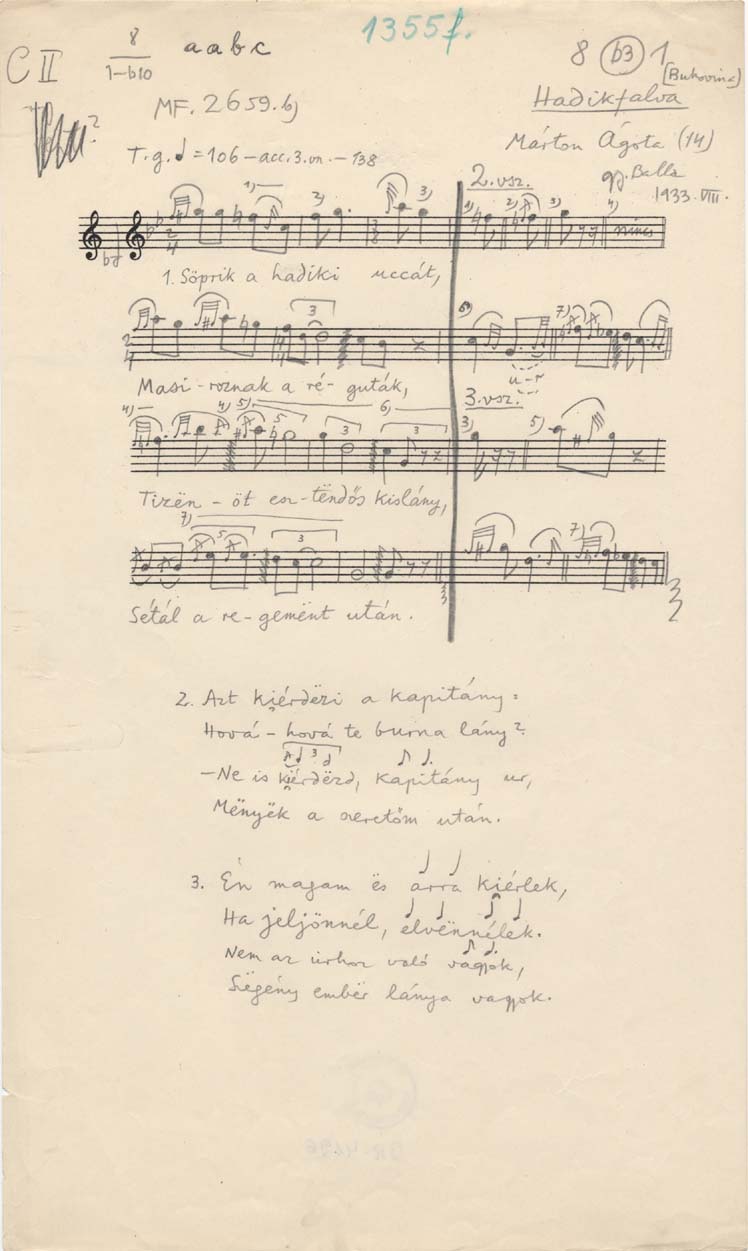 C II
8
1-b10
a a b c
1355f.
8 (b3) 1
[Bukovina]
Hadikfalva
MF. 2659.b)
Márton Ágota (14)
gy. Balla
1933. VIII.
T.g. ♩ = 106 – acc. 3. vn. – 138
2. vsz.
nincs
1. Söprik a hadiki uccát,
Masi-roznak a ré-guták,
u-r
3. vsz.
Tizën-öt esz-tëndős kislány,
Sétál a re-gemënt után.
2. Azt kiérdëzi a kapitány:
Hová-hová te burna lány?
–Ne is kiérdëzd, kapitány ur,
Mënyëk a szeretőm után.
3. Én magam ës arra kiérlek,
Ha jeljönnél, elvënnélek.
Nem az urhoz való vagyok,
Szëgény embër lánya vagyok.